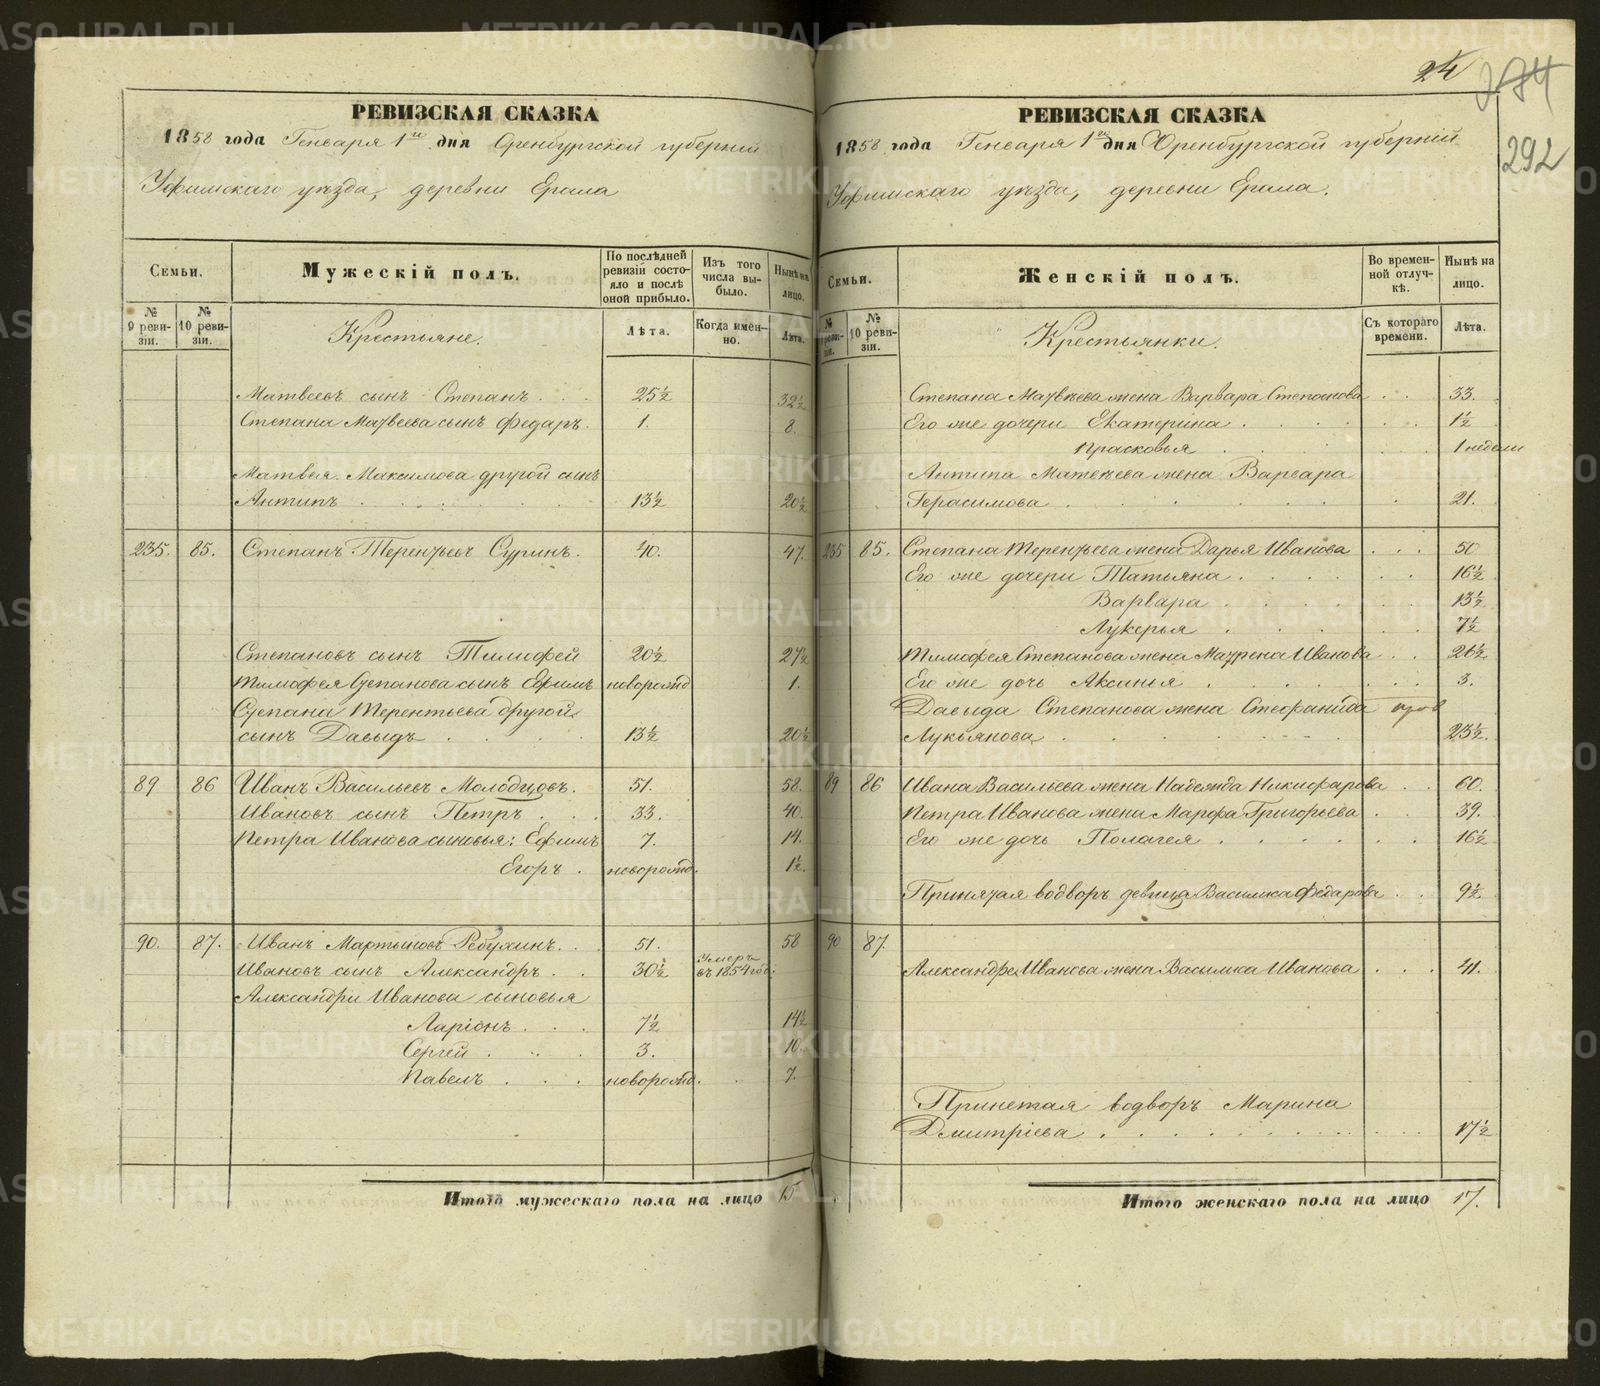 24
292
РЕВИЗСКАЯ СКАЗКА
1858 года Генваря 1го дня Оренбургской губерніи
Уфимскаго уѣзда, деревни Ерала
Семьи.
Мужескій полъ.
По послѣдней ревизіи состояло и послѣ оной прибыло.
Изъ того числа выбыло.
Нынѣ на лицо.
№ 9 ревизіи.
№ 10 ревизіи.
Крестьяне.
Лѣта.
Когда именно.
Лѣта.
Матвеевъ сынъ Степанъ . . . 25½ 32½
Степана Матвеева сынъ Федаръ. 1. 8.
Матвея Максимова другой сынъ
Антипъ . . . . . 13½ 20½
235. 85. Степанъ Терентьевъ Суринъ. 40. 47.
Степановъ сынъ Тимофей 20½ 27½
Тимофея Степанова сынъ Ефимъ новорожд 1.
Степана Терентьева другой
сынъ Давыдъ . . . . 13½ 20½
89 86 Иванъ Васильевъ Молодцовъ. 51. 58.
Ивановъ сынъ Петръ . . . 33. 40.
Петра Иванова сыновья: Ефимъ 7. 14.
Егоръ . новорожд. 1½.
90. 87. Иванъ Мартыновъ Ребухинъ. . 51. 58
Ивановъ сынъ Александръ . . 30½ Умеръ въ 1854 год.
Александры Иванова сыновья
Ларіонъ . . . 7½ 14½
Сергей . . . 3. 10.
Павелъ . . . новорожд. 7.
Итого мужескаго пола на лицо 15
РЕВИЗСКАЯ СКАЗКА
1858 года Генваря 1го дня Оренбургской губерніи
Уфимскаго уѣзда, деревни Ерала.
Семьи.
Женскій полъ.
Во временной отлучкѣ.
Нынѣ на лицо.
№ 9 ревизіи.
№ 10 ревизіи.
Крестьянки.
Съ котораго времени.
Лѣта.
Степана Матвѣева жена Варвара Степанова . . 33.
Его же дочери Екатерина . . . . . . 1½
Прасковья . . . . . 1 недели
Антипа Матвѣева жена Варвара
Герасимова . . . . . . 21.
235 85. Степана Терентьева жена Дарья Иванова . . . 50
Его же дочери Татьяна . . . . . . 16½
Варвара . . . . . 13½
Лукерья . . . . . 7½
Тимофея Степанова жена Матрена Иванова . . 26½
Его же дочь Аксинья . . . . . . 3.
Давыда Степанова жена Стефанида
Лукьянова . . . . . . 23½.
89 86 Ивана Васильева жена Надежда Никифарова . . 60.
Петра Иванова жена Марфа Григорьева . . 39.
Его же дочь Полагея . . . . . . 16½
Принятая водворъ девица Василиса Федарова . . 9½
90 87. Александры Иванова жена Василиса Иванова . . . 41.
Принетая водворъ Марина
Дмитріева . . . . . . . 17½
Итого женскаго пола на лицо 17.
METRIKI.GASO-URAL.RU